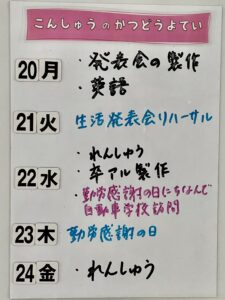 こんしゅう の かつどうよてい
20 月 ・発表会の製作
・英語
21 火 生活発表会リハーサル
・れんしゅう
22 水 ・卒アル製作
・勤労感謝の日にちなんで
自動車学校訪問
23 木 勤労感謝の日
24 金 ・れんしゅう